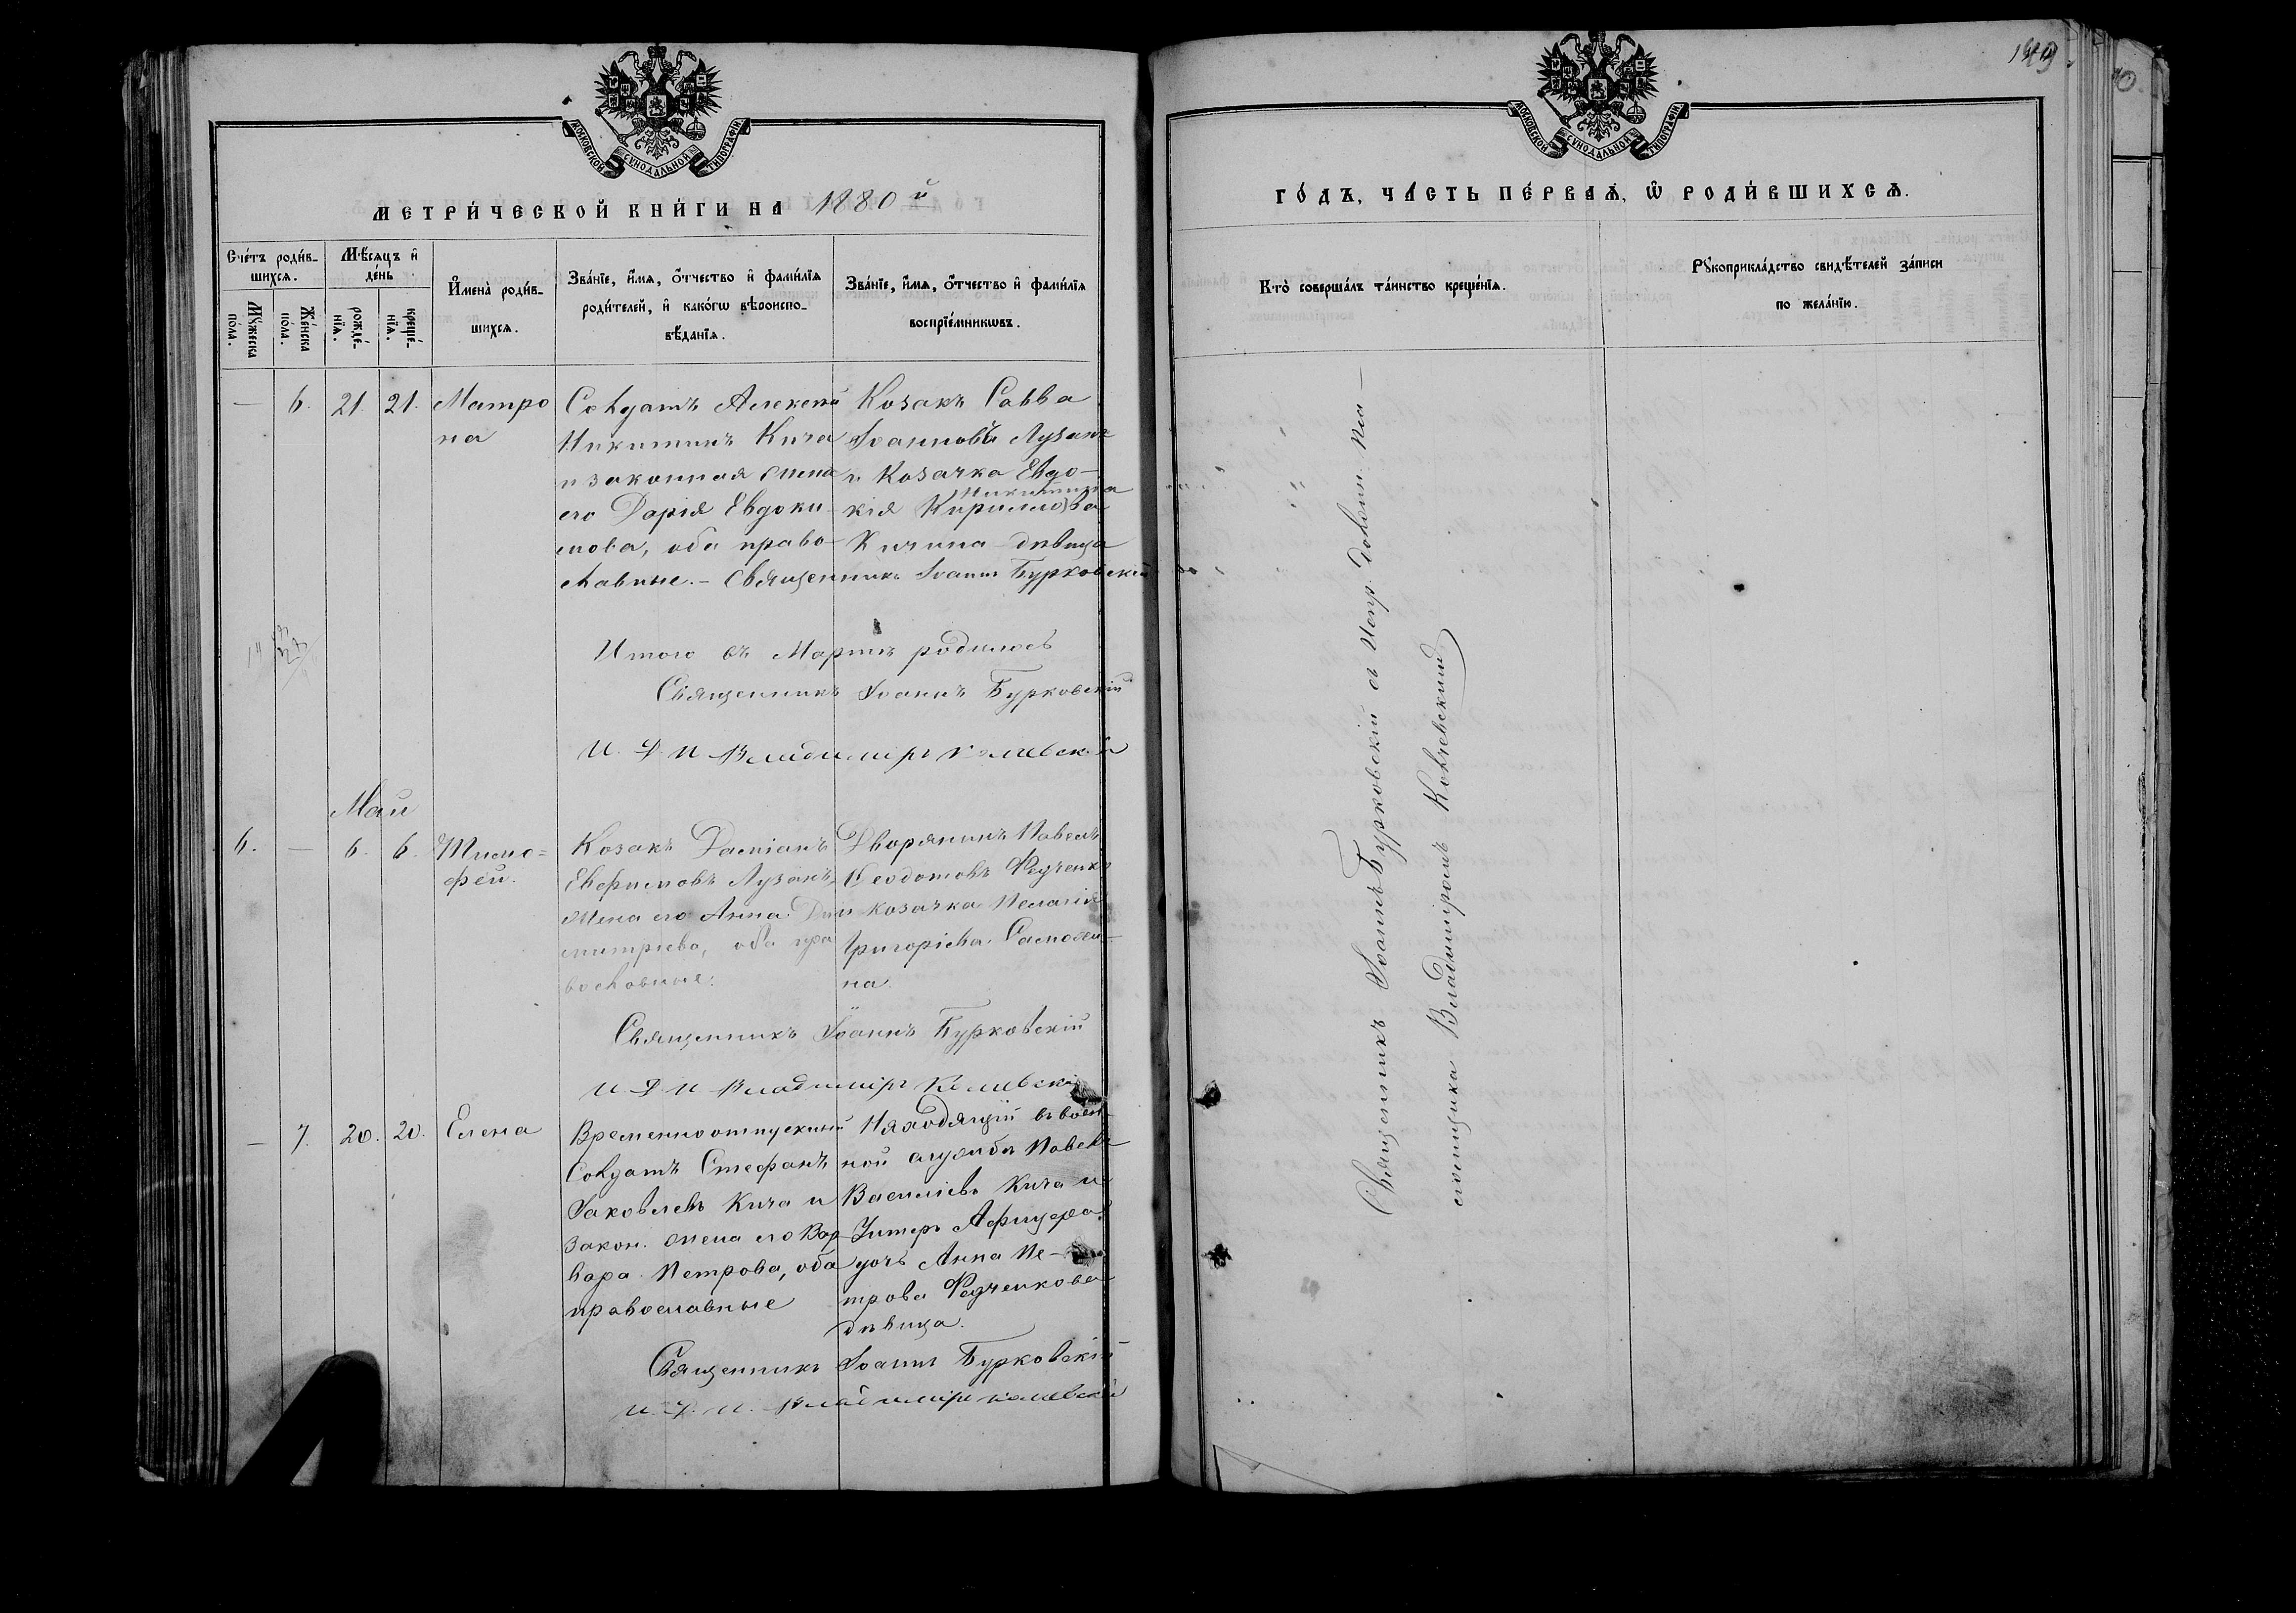 МОСКОВСКОЙ СѴНОДАЛЬНОЙ ТИПОГРАФІИ
МЕТРИ́ЧЕСКОЙ КНИ́ГИ НА 1880й
Сче́тъ роди́в-
шихсѧ.
Мѣ́сѧцъ и҆
де́нь
Мꙋ́жеска
по́ла.
Же́нска
пола.
рожде́-
нїѧ.
креще́-
нїѧ.
И҆мена̀ роди́в-
шихсѧ.
Зва́нїе, и҆́мѧ, ѻ҆́тчество и҆ фами́лїѧ
роди́телей, и҆ како́гѡ вѣроиспо-
вѣ́данїѧ.
Зва́нїе, и҆́мѧ, ѻ҆́тчество и҆ фами́лїѧ
воспрїе́мникѡвъ.
— 6. 21. 21. Матро
на
Солдатъ Алексей
Никитинъ Кича
и законная жена
его Дарія Евдоки-
мова, оба право-
славные. – Священникъ Іоаннъ Бурковскій
Козакъ Савва
Іоанновъ Лузанъ
и Козачка Евдо-
Никитина
кія Кириллова
Кичина девица
Итого въ Мартѣ родилось
Священникъ Іоаннъ Бурковскій
И. Д. П Владиміръ
Май
6. — 6. 6. Тимо=
фей.
Козакъ Даміанъ
Евфимовъ Лузанъ,
жена его Анна Ди
митріева, оба пра
вославные.
Дворянинъ Павелъ
Феодотовъ Федченко
и козачка Пелагія
Григоріева
на.
Священникъ Іоаннъ Бурковскій
И. Д. П Владиміръ
— 7. 20. 20. Елена
Временноотпускный
Солдатъ Стефанъ
Іаковлевъ Кича и
закон. жена его Вар
вара Петрова, оба
православные
Няходящій въ воен-
ной службѣ Павелъ
Василіевъ Кича и
Унтеръ Афицера
дочь Анна Пе-
трова Федченкова
дѣвица.
Священникъ Іоаннъ Бурковскій
И. Д. П. Владиміръ
149
МОСКОВСКОЙ СѴНОДАЛЬНОЙ ТИПОГРАФІИ
ГО́ДЪ, ЧА́СТЬ ПЕ́РВАѦ, Ѡ҆ РОДИ́ВШИХСѦ.
Кто̀ соверша́лъ та́инство креще́нїѧ.
Рꙋкоприкла́дство свидѣ́телей за́писи
по жела́нїю.
Священникъ Іоаннъ Бурковскій съ Испр. должн. Пса-
ломщика Владиміромъ